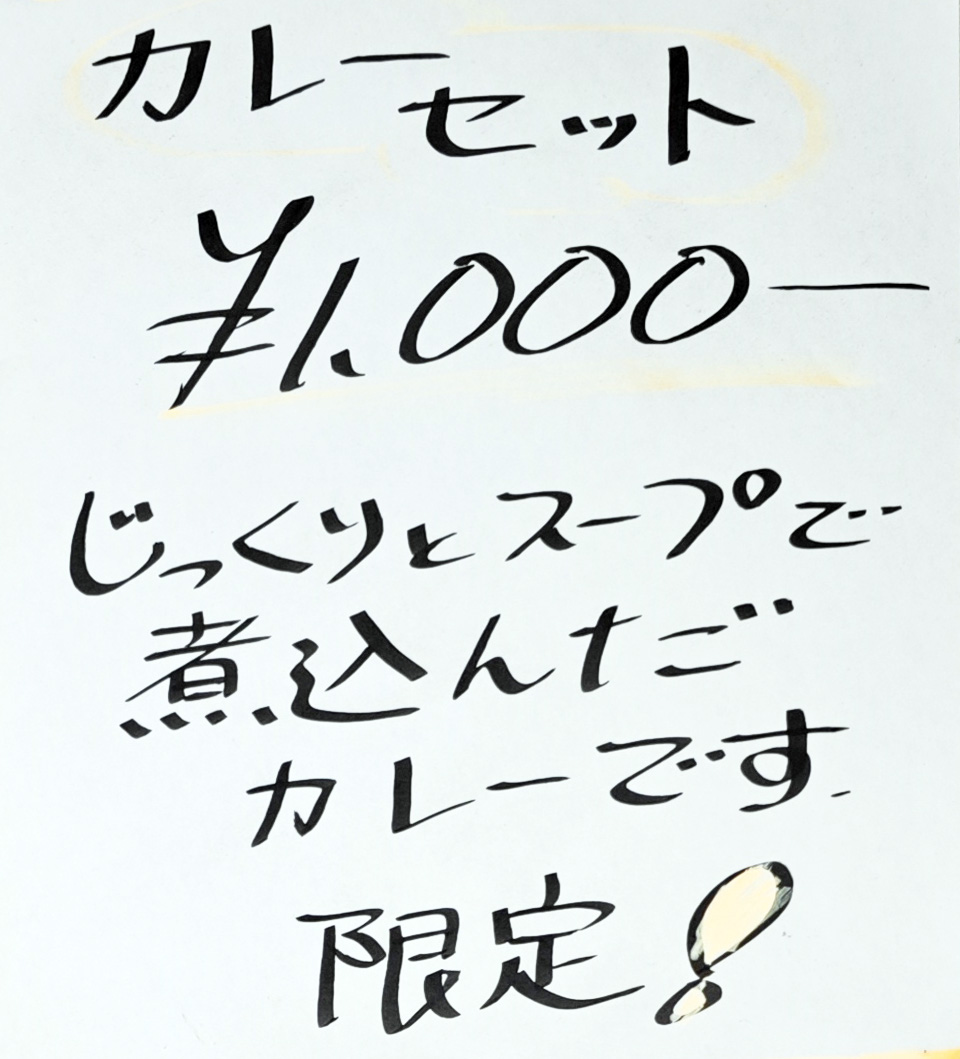 カレーセット
¥1,000ー
じっくりとスープで
煮込んだ
カレーです.
限定!